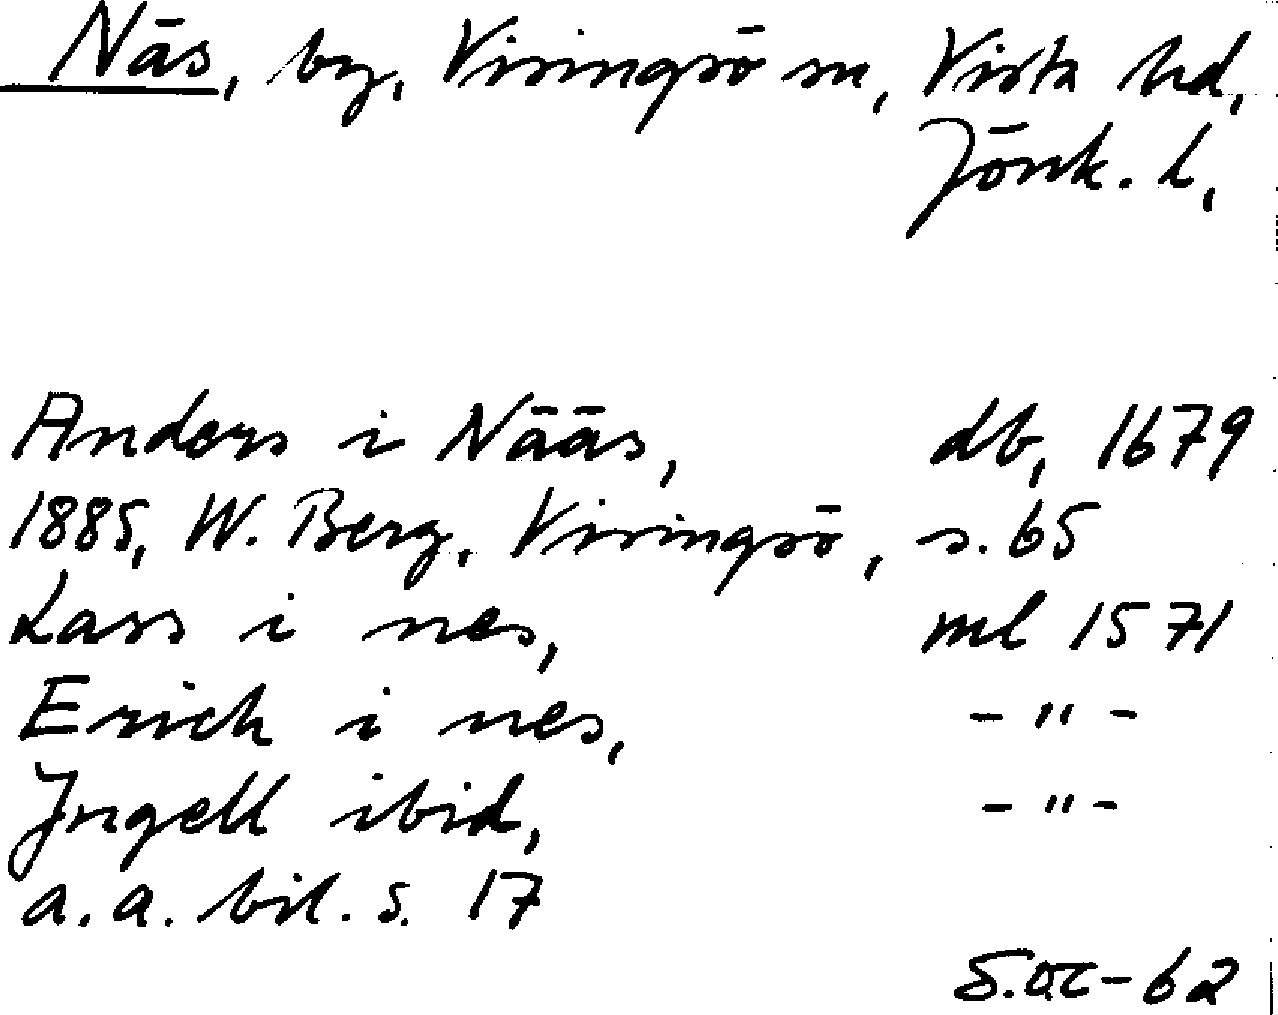 Näs, by, Visingsö sn, Vista hd,
Jönk. l.
Anders i Nääs, db, 1679
1885, W. Berg, Visingsö, s. 65
Lass i nes, ml 1571
Erich i nes, - " -
Jngell ibid, - " -
a.a. bil. s. 17
-62